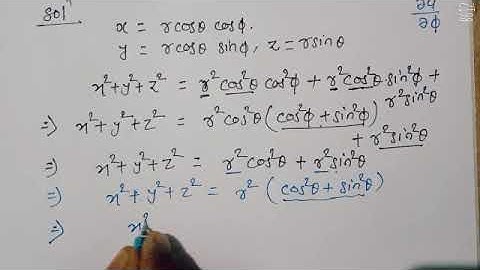 Solⁿ
x = r cosθ cosϕ.
y = r cosθ sinϕ, z = r sinθ
∂ϕ
x²+y²+z² = r²cos²θ cos²ϕ + r²cos²θ sin²ϕ + r²sin²θ
⇒ x²+y²+z² = r²cos²θ (cos²ϕ + sin²ϕ) + r²sin²θ
⇒ x²+y²+z² = r²cos²θ + r²sin²θ
⇒ x²+y²+z² = r² (cos²θ + sin²θ)
⇒ x²